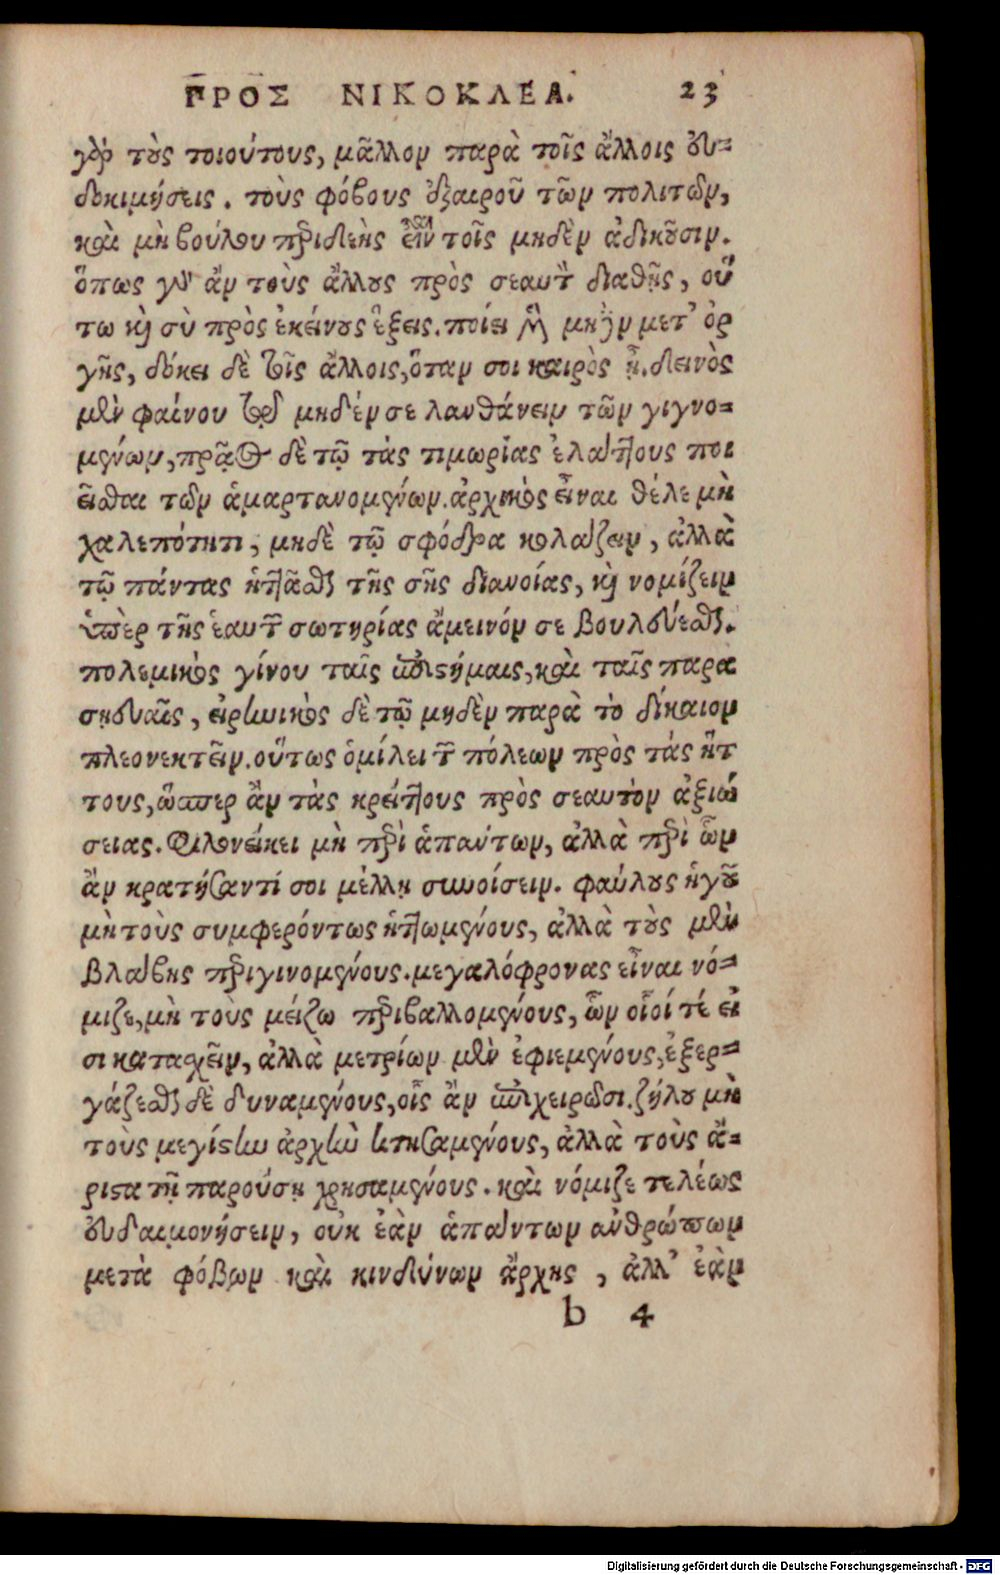 ΠΡΟΣ ΝΙΚΟΚΛΕΑ. 23
γὰρ τοὺς τοιούτους, μᾶλλον παρὰ τοῖς ἄλλοις εὐ-
δοκιμήσεις. τοὺς φόβους ἐξαιροῦ τῶν πολιτῶν,
καὶ μὴ βούλου περιδεὴς εἶναι τοῖς μηδὲν ἀδικοῦσιν.
ὅπως γὰρ ἂν τοὺς ἄλλους πρὸς σεαυτὸν διαθῇς, οὕ
τω καὶ σὺ πρὸς ἐκείνους ἕξεις. ποίει μὲν μηδὲν μετ' ὀρ
γῆς, δόκει δὲ τοῖς ἄλλοις, ὅταν σοι καιρὸς ᾖ. δεινὸς
μὲν φαίνου τῷ μηδέν σε λανθάνειν τῶν γιγνο-
μένων, πρᾷος δὲ τῷ τὰς τιμωρίας ἐλάττους ποι
εῖσθαι τῶν ἁμαρτανομένων. ἀρχικὸς εἶναι θέλε μὴ
χαλεπότητι, μηδὲ τῷ σφόδρα κολάζειν, ἀλλὰ
τῷ πάντας ἡττᾶσθαι τῆς σῆς διανοίας, καὶ νομίζειν
ὑπὲρ τῆς ἑαυτῶν σωτηρίας ἄμεινόν σε βουλεύεσθαι.
πολεμικὸς γίνου ταῖς ἐπιστήμαις, καὶ ταῖς παρα
σκευαῖς, εἰρηνικὸς δὲ τῷ μηδὲν παρὰ τὸ δίκαιον
πλεονεκτεῖν. οὕτως ὁμίλει τῶν πόλεων πρὸς τὰς ἥτ
τους, ὥσπερ ἂν τὰς κρείττους πρὸς σεαυτὸν ἀξιώ
σειας. Φιλονείκει μὴ περὶ ἁπάντων, ἀλλὰ περὶ ὧν
ἂν κρατήσαντί σοι μέλλῃ συνοίσειν. φαύλους ἡγοῦ
μὴ τοὺς συμφερόντως ἡττωμένους, ἀλλὰ τοὺς μετὰ
βλάβης περιγινομένους. μεγαλόφρονας εἶναι νό-
μιζε, μὴ τοὺς μείζω περιβαλλομένους, ὧν οἷοί τέ εἰ
σι κατασχεῖν, ἀλλὰ μετρίων μὲν ἐφιεμένους, ἐξερ-
γάζεσθαι δὲ δυναμένους, οἷς ἂν ἐπιχειρῶσι. ζήλου μὴ
τοὺς μεγίστην ἀρχὴν κτησαμένους, ἀλλὰ τοὺς ἄ-
ριστα τῇ παρούσῃ χρησαμένους. καὶ νόμιζε τελέως
εὐδαιμονήσειν, οὐκ ἐὰν ἁπάντων ἀνθρώπων
μετὰ φόβων καὶ κινδύνων ἄρχῃς, ἀλλ' ἐὰν
b 4
Digitalisierung gefördert durch die Deutsche Forschungsgemeinschaft - DFG